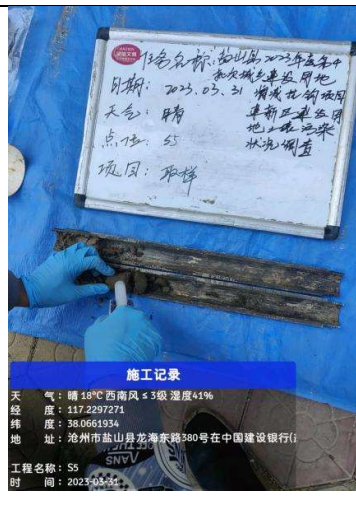 任务名称：盐山县2023年度第4
批次城乡建设用地
日期：2023.03.31 增减挂钩项目
天气：晴 建新区建设用
地土壤污染
点位：S5 状况调查
项目：取样
施工记录
天 气：晴 18℃ 西南风 ≤ 3级 湿度41%
经 度：117.2297271
纬 度：38.0661934
地 址：沧州市盐山县龙海东路380号在中国建设银行(
工程名称：S5
时 间：2023-03-31
VANS